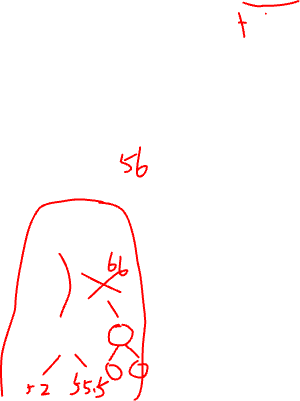 56
66
52 55.5